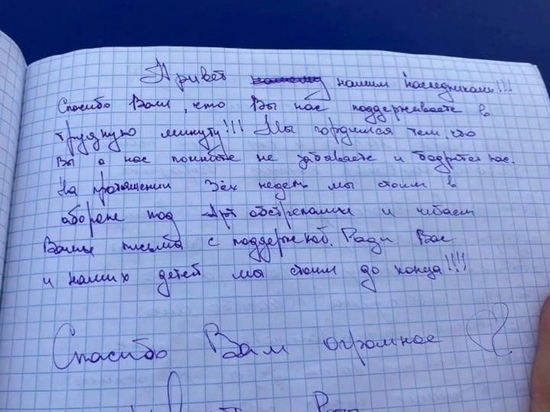 Привет нашим наследникам!!!
Спасибо Вам, что Вы нас поддерживаете в
трудную минуту!!! Мы гордимся тем что
Вы о нас помните не забываете и бодрите нас.
На протяжении 3ёх недель мы стоим в
обороне под Арт обстрелами и читаем
Ваши письма с поддержкой. Ради Вас
и наших детей мы стоим до конца!!!!
Спасибо Вам огромное